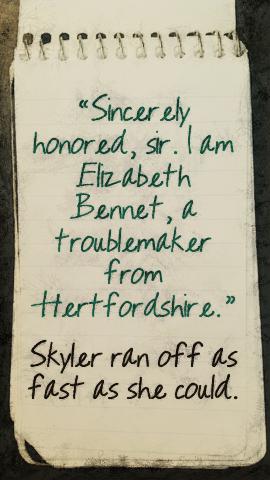 “Sincerely
honored, sir. I am
Elizabeth
Bennet, a
troublemaker
from
Hertfordshire.”
Skyler ran off as
fast as she could.